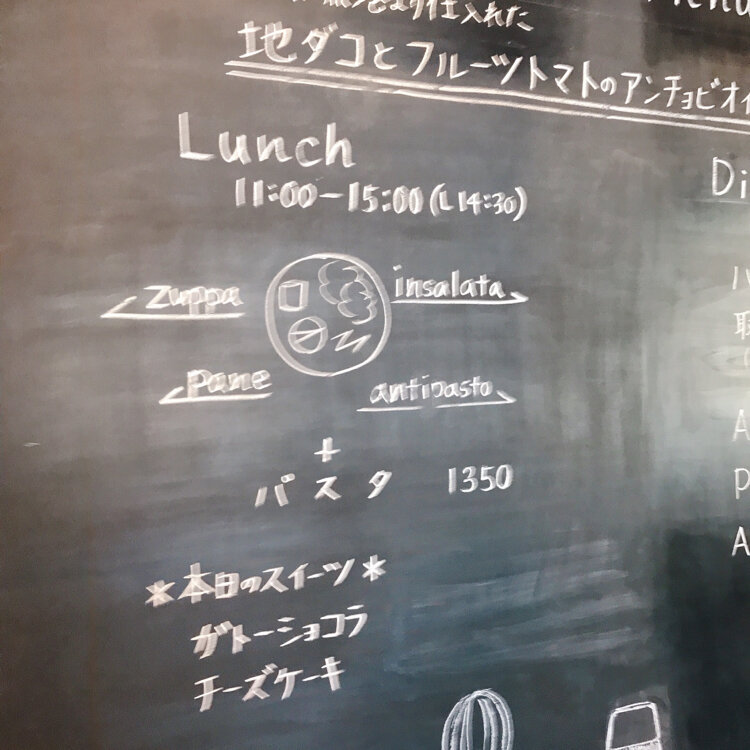 より仕入れた
Menu
地ダコとフルーツトマトのアンチョビオイ
Lunch
11:00-15:00(L14:30)
Di
zuppa
insalata
pane
antipasto
+
パスタ 1350
A
P
A
*本日のスイーツ*
ガトーショコラ
チーズケーキ